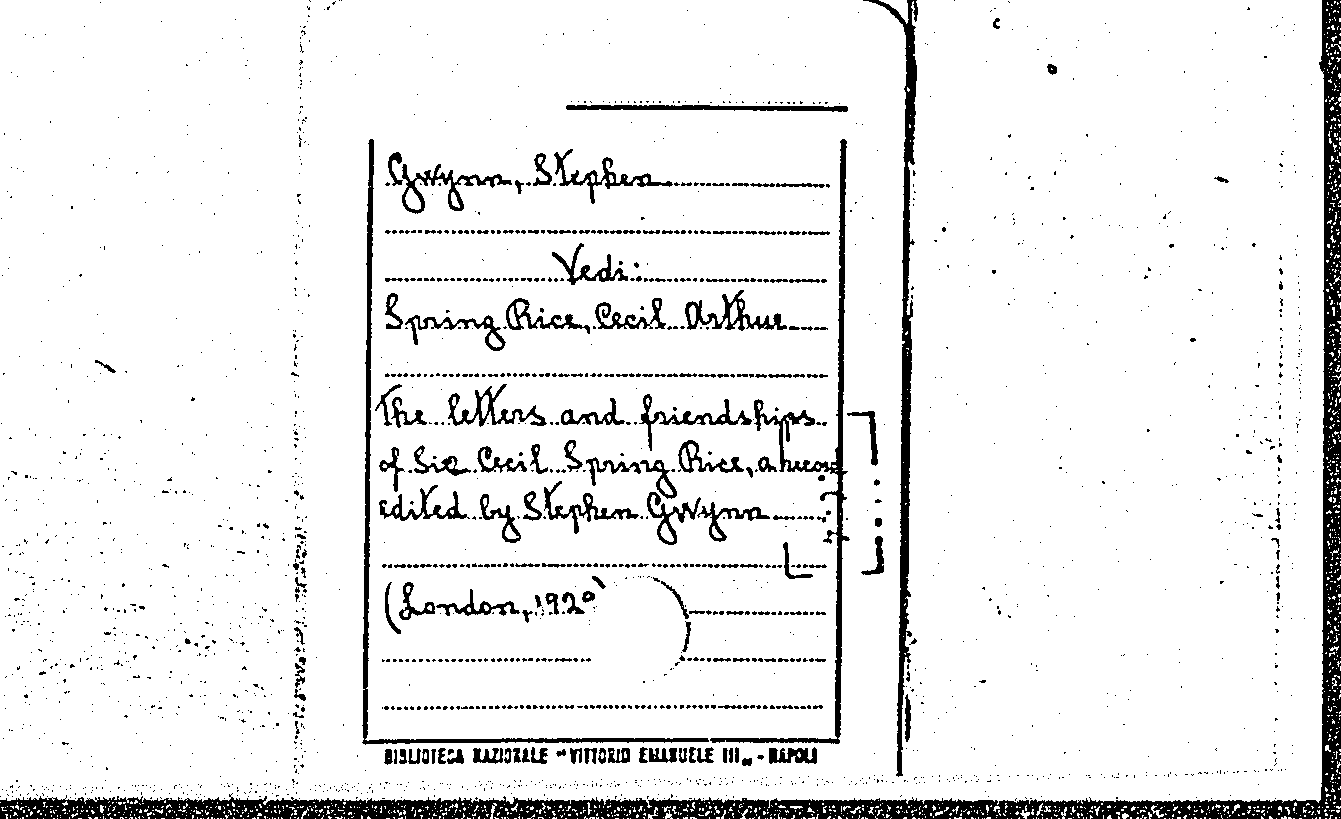 Gwynn, Stephen
Vedi:
Spring Rice, Cecil Arthur
The letters and friendships
of Sir Cecil Spring Rice, a recor
edited by Stephen Gwynn
(London, 192
BIBLIOTECA NAZIONALE "VITTORIO EMANUELE III" - NAPOLI